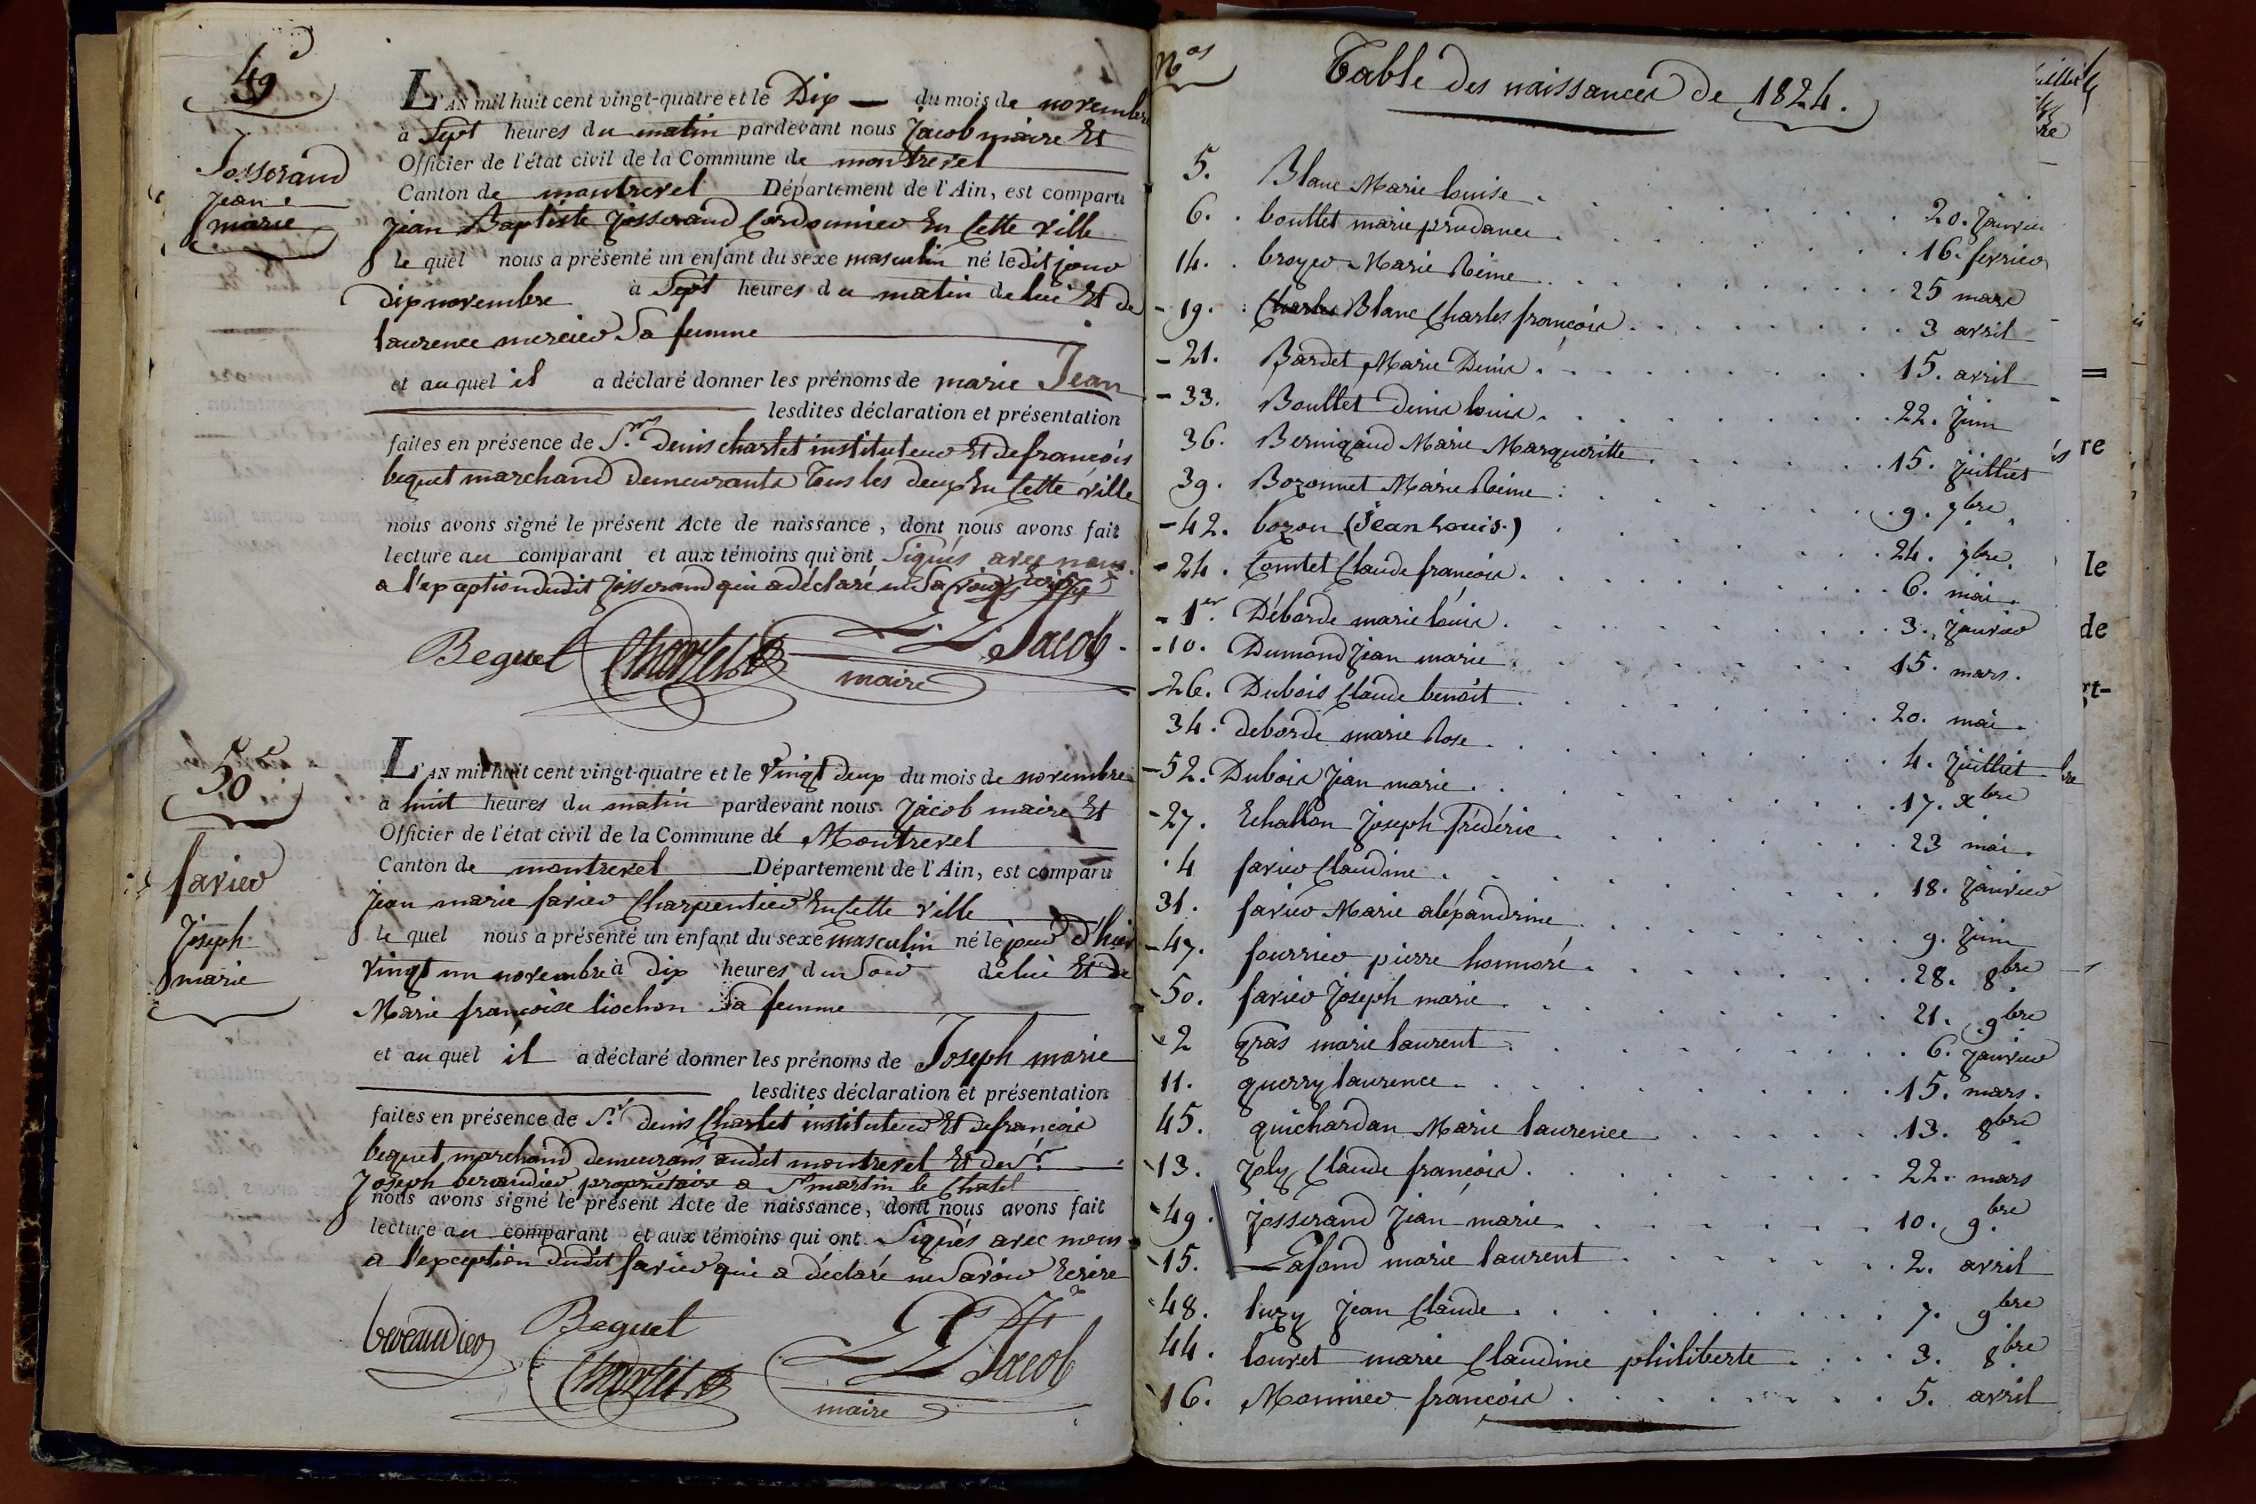 49
Josserand
Jean
marie
L'AN mil huit cent vingt-quatre et le Dix du mois de novembre
à Sept heures du matin pardevant nous Jacob maire Et
Officier de l'état civil de la Commune de montrevel
Canton de montrevel Département de l'Ain, est comparu
jean Baptiste Josserand Cordonnier En Cette ville
le quel nous a présenté un enfant du sexe masculin né le dit jour
dix novembre à Sept heures du matin de lui Et de
laurence mercier Sa femme
et au quel il a déclaré donner les prénoms de marie Jean
lesdites déclaration et présentation
faites en présence de S.rs Denis charlet instituteur Et de francois
bequet marchand Demeurants Tous les deux En Cette ville
nous avons signé le présent Acte de naissance, dont nous avons fait
lecture au comparant et aux témoins qui ont Signés avec nous
a l'exception dudit Josserand qui a déclaré ne Savoir
Bequet Charlet Jacob
maire
50e
favier
Joseph
marie
L'AN mil huit cent vingt-quatre et le Vingt deux du mois de novembre
à huit heures du matin pardevant nous Jacob maire Et
Officier de l'état civil de la Commune de Montrevel
Canton de montrevel Département de l'Ain, est comparu
jean marie favier Charpentier En Cette ville
le quel nous a présenté un enfant du sexe masculin né le jour d'hier
vingt un novembre à dix heures du Soir de lui Et de
Marie françoise liochon Sa femme
et au quel il a déclaré donner les prénoms de Joseph marie
lesdites déclaration et présentation
faites en présence de S.r denis Charlet instituteur Et de francois
bequet marchand demeurans audit montrevel Et de S.r
Joseph beraudier propriétaire a St martin le Chatel
nous avons signé le présent Acte de naissance, dont nous avons fait
lecture au comparant et aux témoins qui ont Signés avec nous
a l'exception dudit favier qui a déclaré ne Savoir Ecrire
beraudier Bequet
Charlet Jacob
maire
Nos Table des naissances de 1824.
5. Blanc Marie louise 20. Janvier
6. boullet marie prudance 16. fevrier
14. broyer Marie Reine 25 mars
19. Charles Blanc Charles françois 3 avril
21. Bardet Marie Denis 15. avril
33. Boullet denis louis 22. Juin
36. Bernigaud Marie Margueritte 15. Juilliet
39. Bozonnet Marie Reine 9. 7bre
42. bozon (Jean Louis.) 24. 7bre
24. Comtet Claude francois 6. mai
1er Déborde marie louis 3. Janvier
10. Dumond Jean marie 15. mars.
26. Dubois Claude benoit 20. mai
34. deborde marie Rose 4. Juilliet
52. Dubois Jean marie 17. xbre
27. Echallon Joseph frédéric 23 mai
4 favier Claudine 18. Janvier
31. favier Marie aléxandrine 9. Juin
47. fourrier pierre honnoré 28. 8bre
50. favier Joseph marie 21. 9bre
2 gras marie laurent 6. Janvier
11. guerry laurence 15. mars.
45. guichardan Marie laurence 13. 8bre
13. Joly Claude françois 22. mars
49. Josserand Jean marie 10. 9bre
15. Lafond marie laurent 2. avril
48. luzy Jean Claude 7. 9bre
44. louvet marie Claudine philiberte 3. 8bre
16. Monnier francois 5. avril
re
le
de
gt-